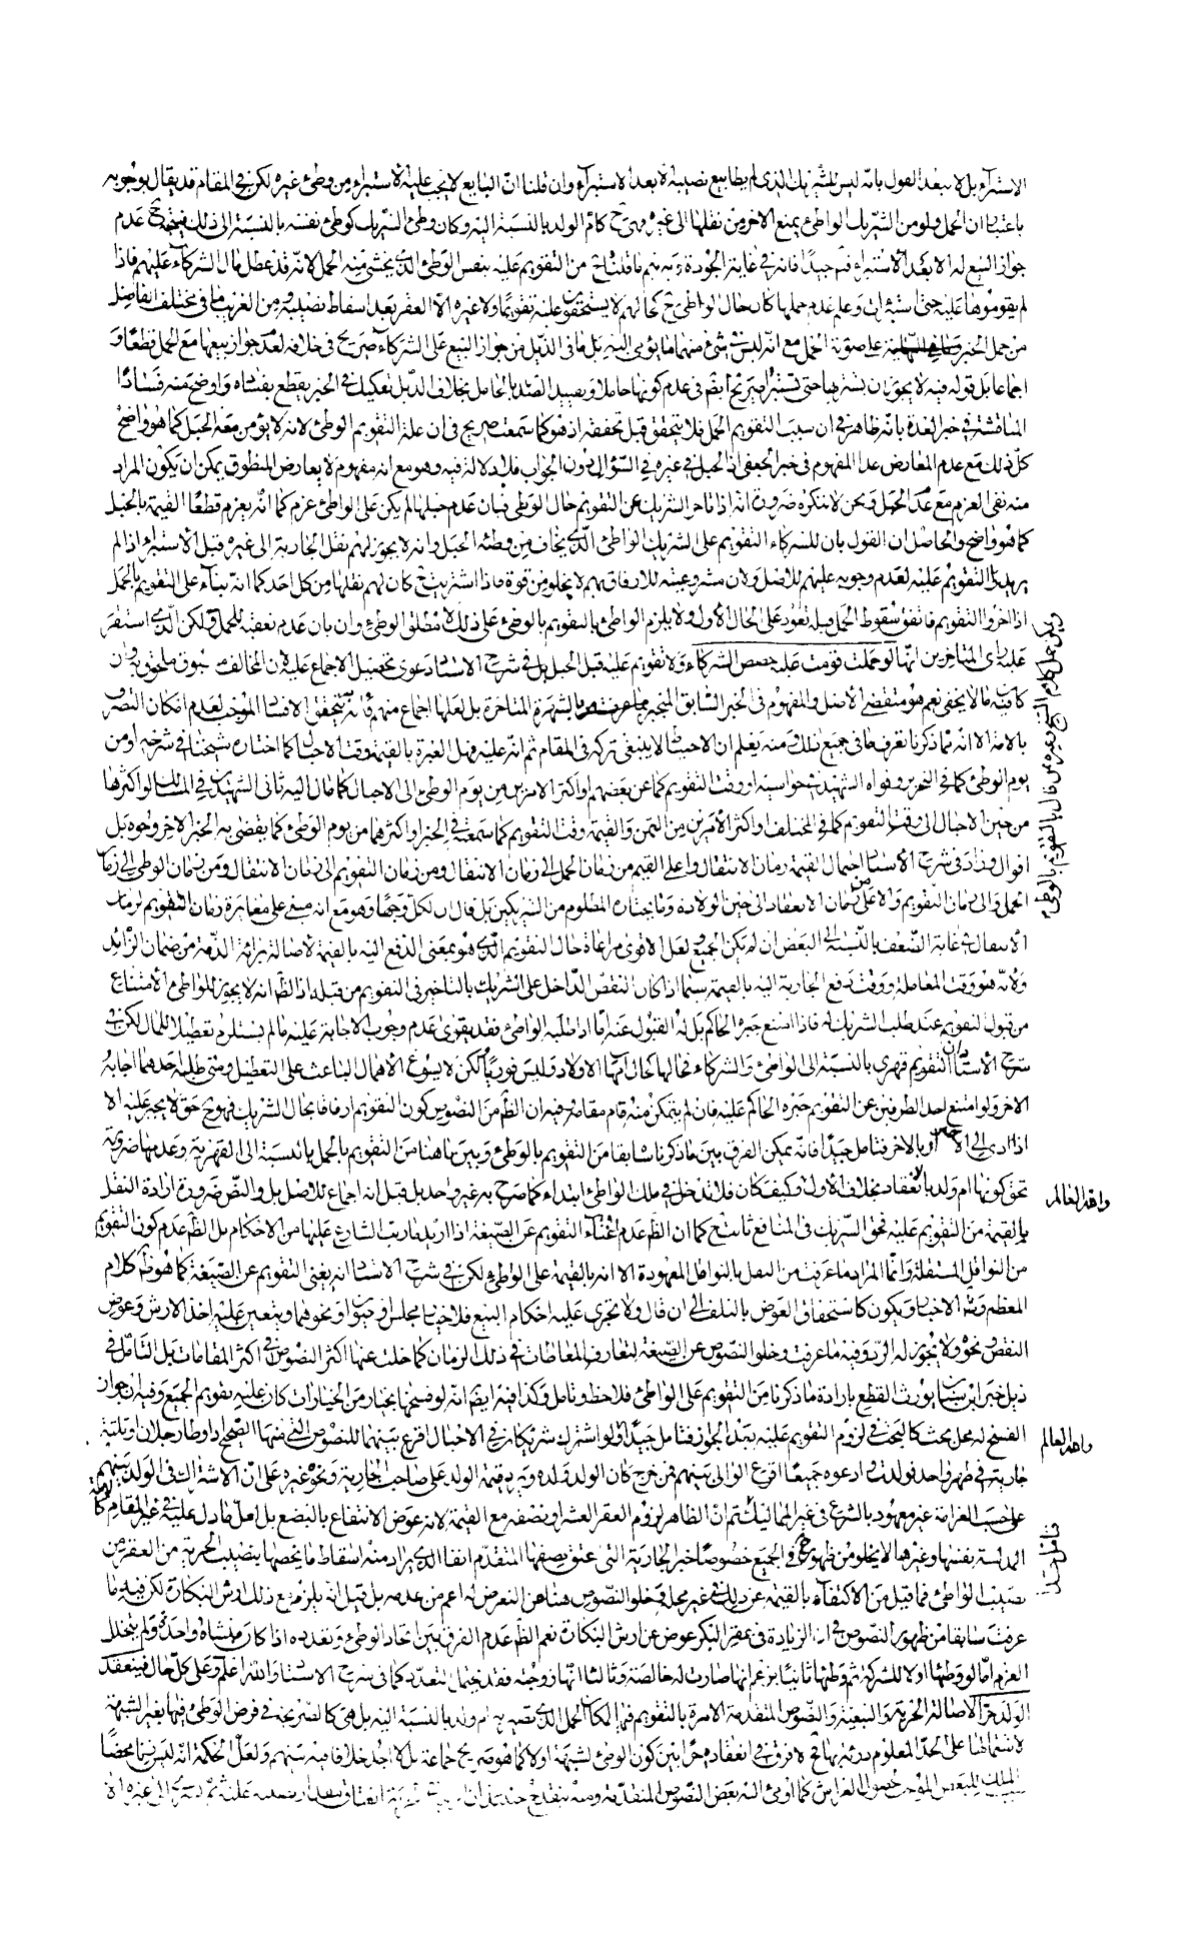 الاستبراء بل لا يبعد القول بانه ليس للشريك الذى لم يطأ بيع نصيبه الا بعد الاستبراء وان قلنا ان البايع لا يجب عليه الاستبراء من وطئ غيره لكن فى المقام قد يقال بوجوبه
باعتبار ان الحمل ولو من الشريك الواطئ يمنع الاخر من نقلها الى غيره فهى ح كام الولد بالنسبة اليه وكان وطئ الشريك كوطئ نفسه بالنسبة الى ذلك فيتجه ح عدم
جواز البيع له الا بعد الاستبراء فتأمل جيدا فانه فى غاية الجودة وبه يتم ما قلناه من التقويم عليه بنفس الوطئ الذى يخشى منه الحمل لانه قد عطل مال الشركاء عليهم فاذا
لم يقوموها عليه حتى استبرأت وعلم عدم حملها كان حال الواطئ ح كحالهم لا يستحقون عليه تقويما ولا غيره الا العقر بعد اسقاط نصيبه ومن الغريب ما فى مختلف الفاضل
من حمل الخبر على صورة الحمل مع انه ليس شئ منهما ما يومى اليه بل ما فى الذيل من جواز البيع على الشركاء صريح فى خلافه لعدم جواز بيعها مع الحمل قطعا و
اجماعا بل قوله فيه لا يجوز ان يشتريها حتى تستبرأ صريح ايضا فى عدم كونها حاملا
المناقشة فى خبر العدة بانه ظاهر فى ان سبب التقويم الحمل فلا يتحقق قبل تحققه اذ هو كما سمعت صريح فى ان علة التقويم الوطئ لانه لا يؤمن معه الحبل كما هو واضح
كل ذلك مع عدم المعارض عدا المفهوم فى خبر الجعفى اذ الحبل فى غيره فى السؤال دون الجواب فلا دلالة فيه وهو مع انه مفهوم لا يعارض المنطوق يمكن ان يكون المراد
منه نفى الغرم مع عدم الحمل ونحن لا ننكره ضرورة انه اذا تاخر الشريك عن التقويم حال الوطى فبان عدم حبلها لم يكن على الواطئ غرم كما انه يغرم قطعا القيمة بالحبل
كما هو واضح والحاصل ان القول بان للشركاء التقويم على الشريك الواطئ الذى يخاف من وطئه الحبل وانه لا يجوز لهم نقل الجارية الى غيره قبل الاستبراء اذا لم
يريدوا التقويم عليه لعدم وجوبه عليهم للاصل ولان مشروعيته للارفاق بهم لا يخلو من قوة فاذا استبرئت كان لهم نقلها من كل احد كما انه بناء على التقويم بالحمل
اذا اخروا التقويم فاتفق سقوط الحمل قبله تعود على الحال الاول ولا يلزم الواطئ بالتقويم بالوطئ على ذلك لا مطلق الوطئ وان بان عدم تعقبه للحمل ولكن الذى استقر
عليه راى المتاخرين انها لو حملت قومت عليه حصص الشركاء ولا تقويم عليه قبل الحبل بل فى شرح الاستاد دعوى تحصيل الاجماع عليه لان المخالف مسبوق ملحوق به وان
كان فيه ما لا يخفى نعم هو مقتضى الاصل والمفهوم فى الخبر السابق المنجبر بالشهرة المتاخرة بل لعلها اجماع منهم فانه به يتحقق الافساد الموجب لعدم امكان التصرف
بالامة الا انه مما ذكرنا تعرف ما فى جميع ذلك ومنه يعلم ان الاحتياط لا ينبغى تركه فى المقام ثم انه عليه فهل العبرة بالقيمة وقت الاحبال كما اختاره شيخنا فى شرحه او من
يوم الوطئ كما فى التحرير وقواه الشهيد فى حواشيه او وقت التقويم كما عن بعضهم او اكثر الامرين من يوم الوطئ الى الاحبال كما مال اليه ثانى الشهيدين فى المسالك او اكثرها
من حين الاحبال الى وقت التقويم كما فى المختلف او اكثر الامرين من الثمن والقيمة وقت التقويم كما سمعته فى الخبر او اكثرهما من يوم الوطئ كما يقضى به الخبر الاخر وجوه بل
اقوال وزاد فى شرح الاستاد احتمال القيمة زمان الانتقال واعلى القيم من زمان الحمل الى زمان الانتقال ومن زمان التقويم الى زمان الانتقال ومن زمان الوطى الى زمان
الحمل والى زمان التقويم والاعلى من زمان الانعقاد الى حين الولادة وما يختاره المظلوم من الشريكين بل قال ان لكل وجها وهو مع انه مبنى على مغايرة زمان التقويم لزمان
الانتقال فى غاية الضعف بالنسبة الى البعض ان لم يكن الجميع ولعل الاقوى مراعاة حال التقويم الذى هو بمعنى الدفع اليه بالقيمة لاصالة برائة الذمة من ضمان الزائد
ولانه هو وقت المعاملة ووقت دفع الجارية اليه بالقيمة سيما اذا كان النقص الداخل على الشريك بالتاخير فى التقويم من قبله اذ الظ انه لا يجوز للواطئ الامتناع
من قبول التقويم عند طلب الشريك له فاذا امتنع جبره الحاكم بل له القبول عنه اما اذا طلبه الواطئ فقد يقوى عدم وجوب الاجابة عليه ما لم يستلزم تعطيلا للمال لكن فى
شرح الاستاد ان التقويم قهرى بالنسبة الى الواطئ والشركاء فحالها كحال امهات الاولاد وليس فوريا لكن لا يسوغ الاهمال الباعث على التعطيل ومتى طلبه احدهما اجابه
الاخر ولو امتنع احد الطرفين عن التقويم جبره الحاكم عليه فان لم يتمكن منه قام مقامه وفيه ان الظ من النصوص كون التقويم ارفاقا بحال الشريك فهو ح حق لا يجبر عليه الا
اذا ادى الى الاضرار بالاخر فتامل جيدا فانه يمكن الفرق بين ما ذكرناه سابقا من التقويم بالوطئ وبين ما هنا من التقويم بالحمل بالنسبة الى القهرية وعدمها ضرورة
تحقق كونها ام ولد بالانعقاد بخلاف الاول وكيف كان فلا تدخل فى ملك الواطئ ابتداء كما صرح به غير واحد بل قيل انه اجماع للاصل بل والنص ضرورة ارادة النقل
بالقيمة من التقويم عليه فحق الشريك فى المنافع ثابت ح كما ان الظ عدم اغناء التقويم عن الصيغة
من النواقل المستقلة وانما المراد ما عرفت من النقل بالنواقل المعهودة الا انه بالقيمة على الواطئ لكن فى شرح الاستاد انه يغنى التقويم عن الصيغة كما هو ظ كلام
المعظم وفيه الاحتياط ويكون كاستحقاق العوض بالتلف الى ان قال ولا تجرى عليه احكام البيع فلا خيار مجلس او حيوان او نحوهما ويتعين عليه اخذ الارش وعوض
النقص ونحوه ولا يجوز له الرد وفيه ما عرفت وخلو النصوص عن الصيغة لتعارف المعاطات فى ذلك الزمان كما خلت عنها اكثر النصوص فى اكثر المقامات بل التامل فى
ذيل خبر ابن سنان يورث القطع بارادة ما ذكرنا من التقويم على الواطئ فلاحظ وتامل وكذا فيه ايضا انه لو فسخها بخيار من الخيارات كان عليه تقويم الجميع وفيه ان جواز
الفسخ له محل بحث كالبحث فى لزوم التقويم عليه بعد الجواز فتامل جيدا ولو اشترك شريكان فى الاحبال اقرع بينهما للنصوص التى منها الصحيح اذا وطأ رجلان او ثلثة
جارية فى طهر واحد فولدت فادعوه جميعا اقرع الوالى بينهم فمن خرج كان الولد ولده ويرد قيمة الولد على صاحب الجارية ونحوه غيره على ان الاشتراك فى الولد بينهم
على حسب الغرامة غير معهود بالشرع فى غير المماليك ثم ان الظاهر لزوم العقر العشر او نصفه مع القيمة لانه عوض الانتفاع بالبضع بل لعل ما دل عليه فى غير المقام كالامة
المدلسة بنفسها وغيرها لا يخلو من ظهور فى الجميع خصوصا خبر الجارية التى عتق نصفها المتقدم انفا الذى يراد منه اسقاط ما يخصها بنصيب الحرية من العقر من
نصيب الواطئ فما قيل من الاكتفاء بالقيمة عن ذلك فى غير محله وخلو النصوص هنا عن التعرض له اعم من عدمه بل قيل انه يلزم مع ذلك ارش البكارة لكن فيه ما
عرفت سابقا من ظهور النصوص فى ان الزيادة فى عقر البكر عوض عن ارش البكارة نعم الظ عدم الفرق بين اتحاد الوطئ وتعدده اذا كان منشاه واحدا ولم يتخلل
الغرم اما لو وطئها اولا للشركة ثم وطئها ثانيا بزعم انها صارت له خالصة وثالثا انها زوجته فقد يحتمل التعدد كما فى شرح الاستاد والله اعلم وعلى كل حال فينعقد
الولد حرا لاصالة الحرية والتبعية والنصوص المتقدمة الامرة بالتقويم
لاشتمالها على الحد المعلوم درئه بها ح لا فرق فى انعقاده حرا بين كون الوطئ لشبهة او لا كما هو صريح جماعة بل لا اجد خلافا فيه بينهم ولعل الحكمة انه ليس زنا محضا
كما اومئ اليه بعض النصوص المتقدمة ومنه ينقدح
وليس على كلام الشيخ وغيره ممن قال بالتقويم بالوطى
والله العالم
والله العالم
فتامل جيدا